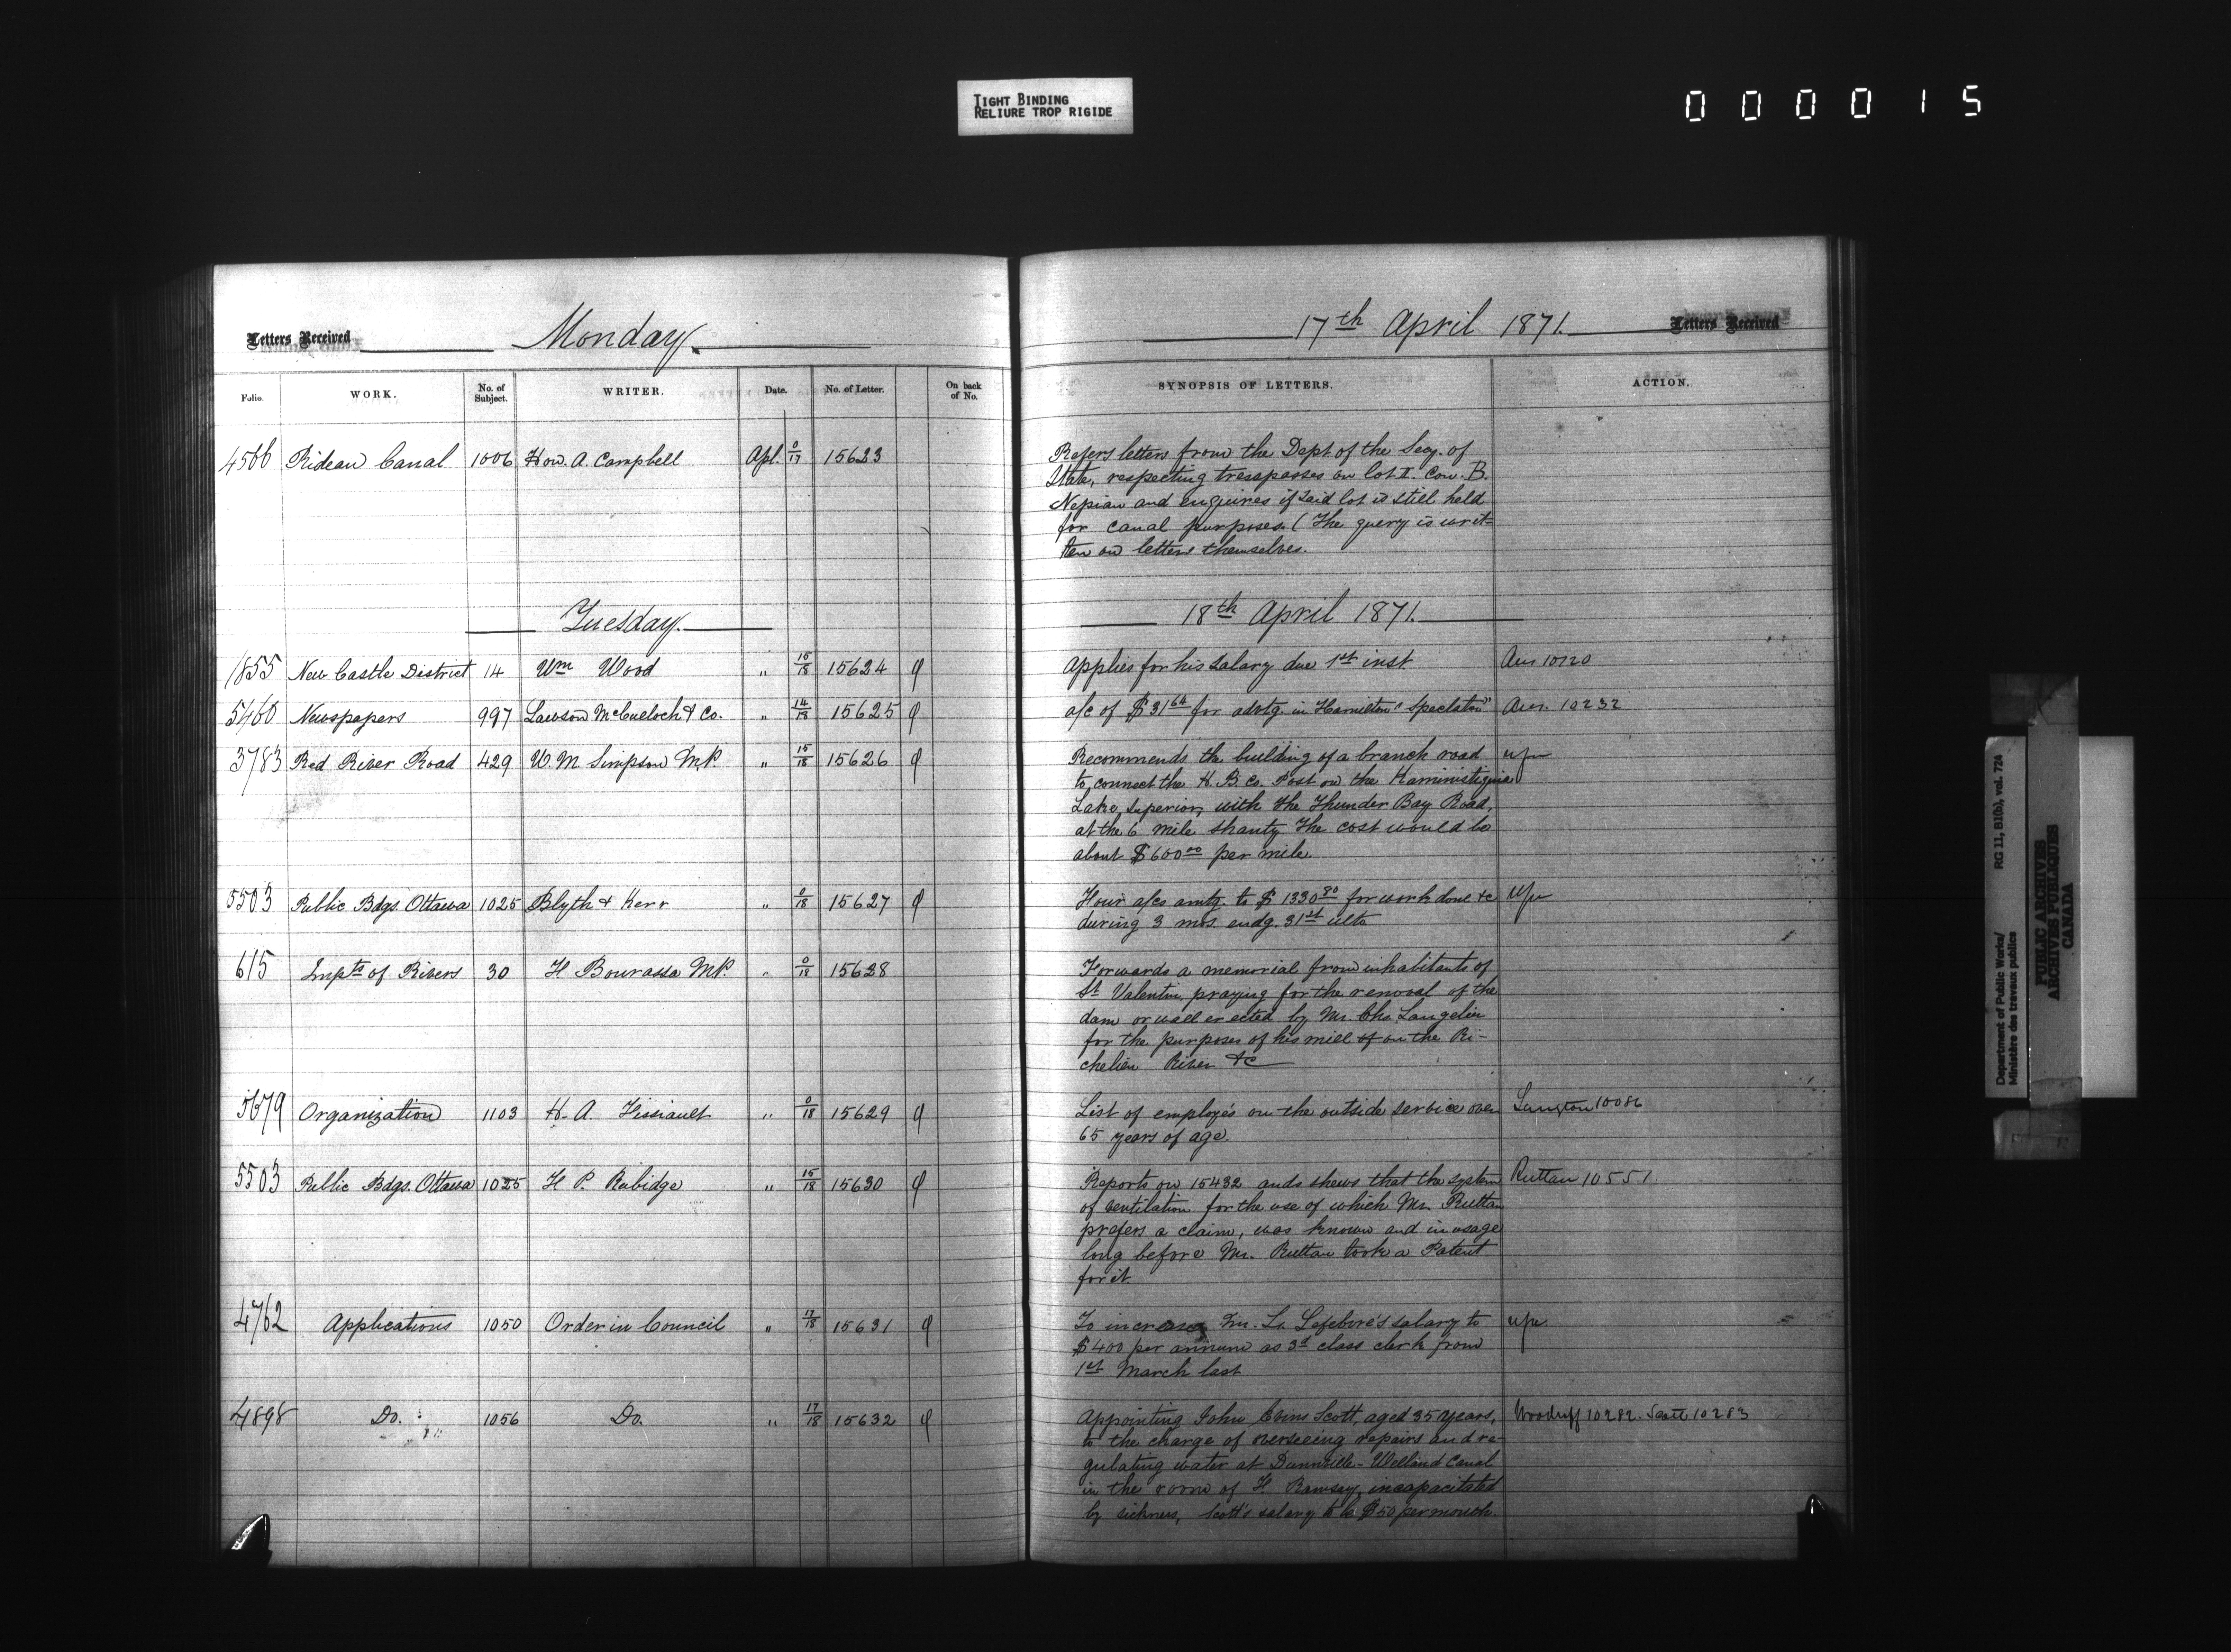 TIGHT BINDING
RELIURE TROP RIGIDE
0 0 0 0 1 5
Letters Received Monday. 17th April 1871. Letters Received
Folio. WORK. No. of Subject. WRITER. Date. No. of Letter. On back of No. SYNOPSIS OF LETTERS. ACTION.
4566 Rideau Canal 1006 Hon. A. Campbell Apl. 0/17 15623 Refers letters from the Dept of the Secy. of
State, respecting tresspasses on lot I. Con. B.
Nepian and enquires if said lot is still held
for canal purposes. (The query is writ-
ten on letters themselves.
Tuesday. 18th April 1871.
1855 New Castle District 14 Wm Wood " 15/18 15624 Applies for his salary due 1st inst. Ans 10120
5460 Newspapers 997 Lawson McCulloch & Co. " 14/18 15625 a/c of $31 64 for advtg. in Hamilton "Spectator" Ans. 10232
3783 Red River Road 429 W. M. Simpson M.P. " 15/18 15626 Recommends the building of a branch road
to connect the H. B. Co. Post on the Kaministiquia
Lake Superior, with the Thunder Bay Road,
at the 6 mile shanty. The cost would be
about $600 00 per mile.
5503 Public Bdgs. Ottawa 1025 Blyth & Kerr " 0/18 15627 Four a/cs amtg. to $1330 80 for work done &c
during 3 mos. endg. 31st ulto
615 Impts of Rivers 30 F Bourassa M.P. " 0/18 15628 Forwards a memorial from inhabitants of
St Valentin, praying for the renoval of the
dam or wall erected by Mr. Chs. Langelier
for the purposes of his mill of on the Ri-
chelieu River &c
5679 Organization 1103 H. A. Fissiault " 0/18 15629 List of employés on the outside service over Langton 10086
65 years of age.
5503 Public Bdgs. Ottawa 1025 F. P. Rubidge " 15/18 15630 Reports on 15432 and shews that the system Ruttan 10551
of ventilation for the use of which Mr. Ruttan
prefers a claim, was known and in usage
long before Mr. Ruttan took a Patent
for it.
4762 Applications 1050 Order in Council " 17/18 15631 To increase Mr. L. Lefebvre's salary to
$400 per annum as 3d class clerk from
1st March last
4898 Do. 1056 Do. " 17/18 15632 Appointing John Evins Scott, aged 35 years, Woodruff 10282. Scott 10283
to the charge of overseeing repairs and re-
gulating water at Dunnville - Welland Canal
in the room of F. Ramsay, incapacitated
by sickness, Scott's salary to be $50 per month.
Department of Public Works/ RG 11, B1(b), vol. 724
Ministère des travaux publics
PUBLIC ARCHIVES
ARCHIVES PUBLIQUES
CANADA